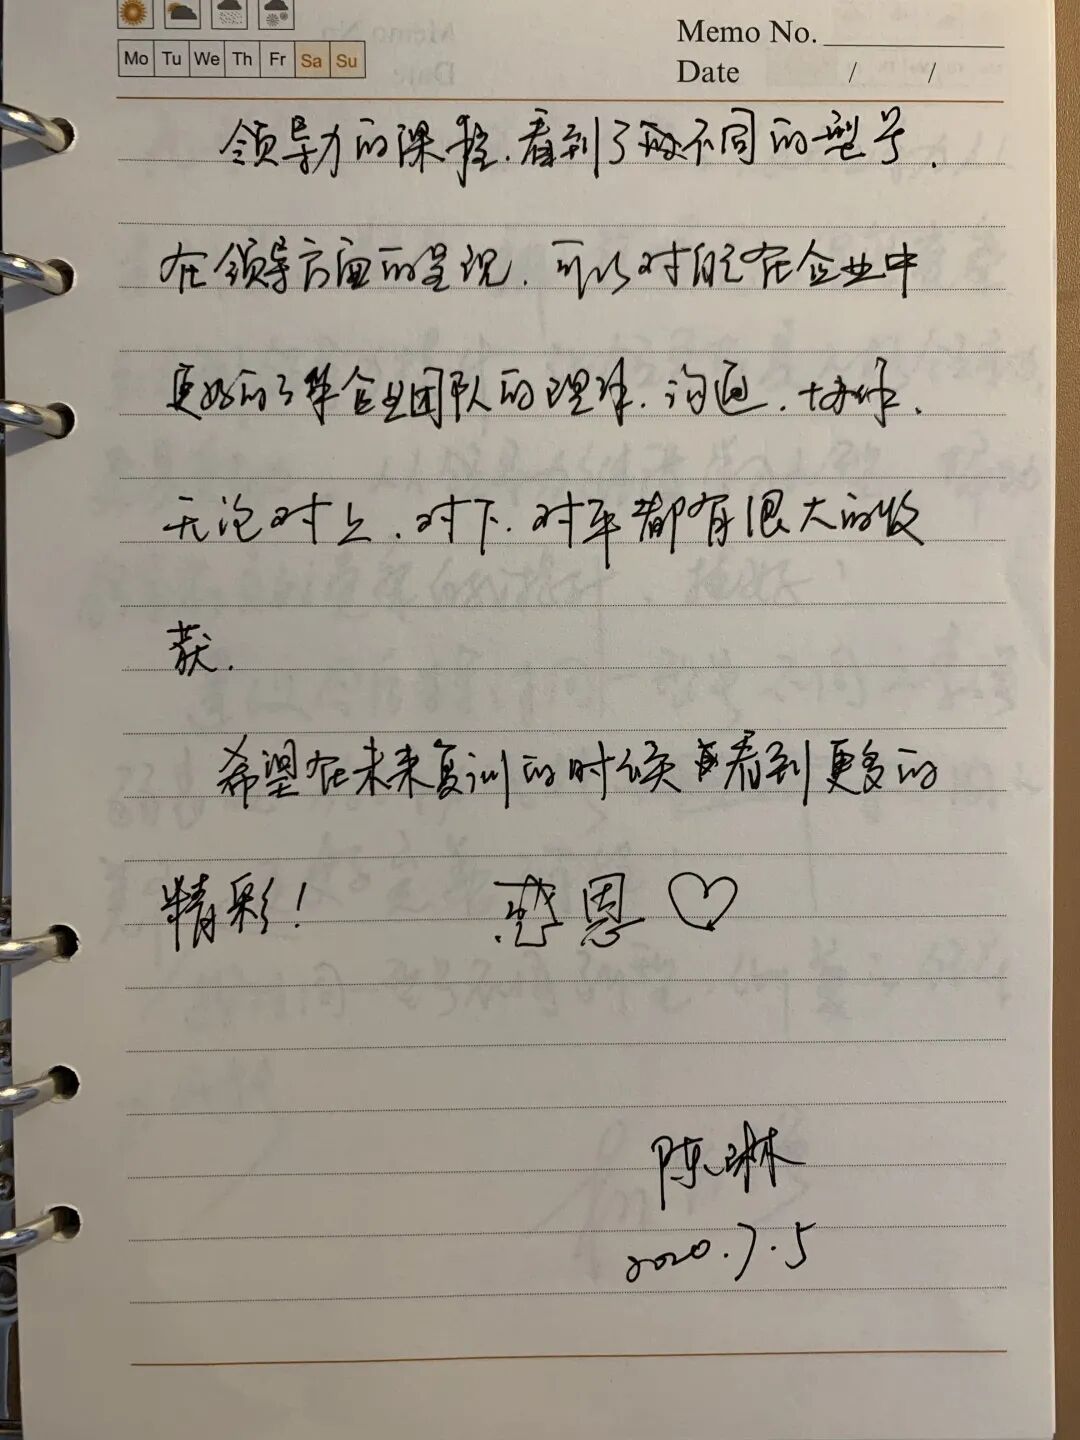 Mo Tu We Th Fr Sa Su
Memo No.
Date / /
领导力的课程.看到了不同的型号.
在领导方面的呈现.可以对自己在企业中
更好的了解企业团队的理解.沟通.协作.
无论对上.对下.对平都有很大的收
获.
希望在未来复训的时候看到更多的
精彩! 感恩♡
陈琳
2020.7.5